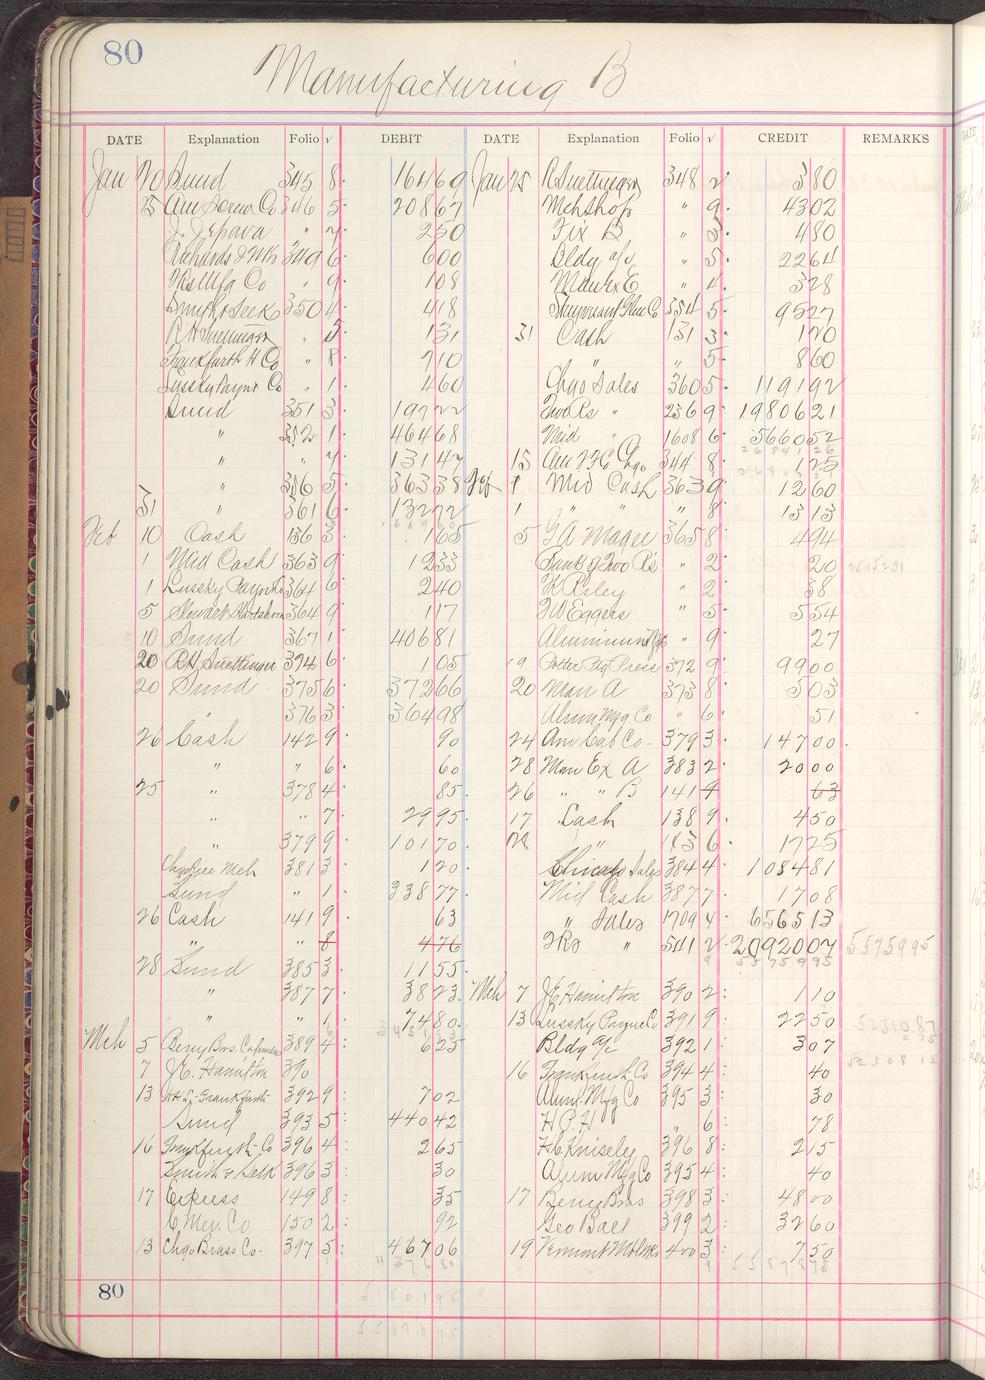 80
Manufacturing B
DATE Explanation Folio √ DEBIT DATE Explanation Folio √ CREDIT REMARKS
Jan 20 Sund 345 8 164 69 Jan 25 348 2 3 80
25 Am Screw Co 346 5 208 67 Mchshop " 9 43 02
" 7 2 50 Fix B " 3 4 80
349 6 6 00 Bldg a/c " 5 22 64
Mfg Co " 9 1 08 Man Ex E " 4 3 28
350 4 4 18 354 5 95 27
" 5 1 31 31 Cash 131 3 1 20
Frankfurth H Co " 8 7 10 " " 5 8 60
Lussky Payn Co " 1 4 60 Chgo Sales 360 5 1191 92
Sund 351 3 197 22 Two Rs " 236 9 19806 21
" 352 1 464 68 Mid " 1608 6 5660 52
" " 7 131 47 15 344 8 1 25
" 356 5 563 38 Feb 1 Mid Cash 363 9 12 60
31 " 361 6 132 72 1 " " " 8 13 13
Feb 10 Cash 136 3 1 65 5 G A Magee 365 8 4 94
1 Mid Cash 363 9 12 33 " 2 20
1 Lussky Payn Co 364 6 2 40 K Riley " 2 38
5 Stewart Hartshorn 364 9 1 17 F W Eggers " 5 5 54
10 Sund 367 1 406 81 Aluminum " 9 27
20 374 6 1 05 19 Potter Ptg Press 372 9 99 00
20 Sund 375 6 372 66 20 Man A 373 8 5 03
" 376 3 364 98 Alum Mfg Co " 6 51
26 Cash 142 9 90 24 Am Cab Co 379 3 147 00
" " 6 60 28 Man Ex A 383 2 20 00
25 " 378 4 85 26 " " B 141 9 63
" " 7 29 95 17 Cash 138 9 4 50
" 379 9 101 70 " 6 17 25
Mch 381 3 1 20 Chicago Sales 384 4 1084 81
Sund " 1 338 77 Mid Cash 387 7 17 08
26 Cash 141 9 63 " Sales 1709 4 6565 13
" " 8 4 76 2 Rs " 541 2 20920 07 5575995
28 Sund 385 3 11 55
" 387 7 38 23 Mch 7 J E Hamilton 390 2 1 10
" " 1 74 80 13 Lussky Payne Co 391 9 22 50
Mch 5 Berry Bros. 389 4 6 25 Bldg a/c 392 1 3 07
7 J E Hamilton 390 16 Frankfurth Co 394 4 40
13 Frankfurth 392 9 7 02 Alum Mfg Co 395 3 30
Sund 393 5 440 42 H P H " 6 78
16 Frankfurth Co 396 4 2 65 H C Knisely 396 8 2 15
Smith & Selk 396 3 30 Alum Mfg Co 395 4 40
17 Express 149 8 35 17 Berry Bros 398 3 48 00
Co 150 2 92 Geo Bael 399 2 32 60
13 Chgo Brass Co. 397 5 467 06 19 Vermont 400 3 7 50
80